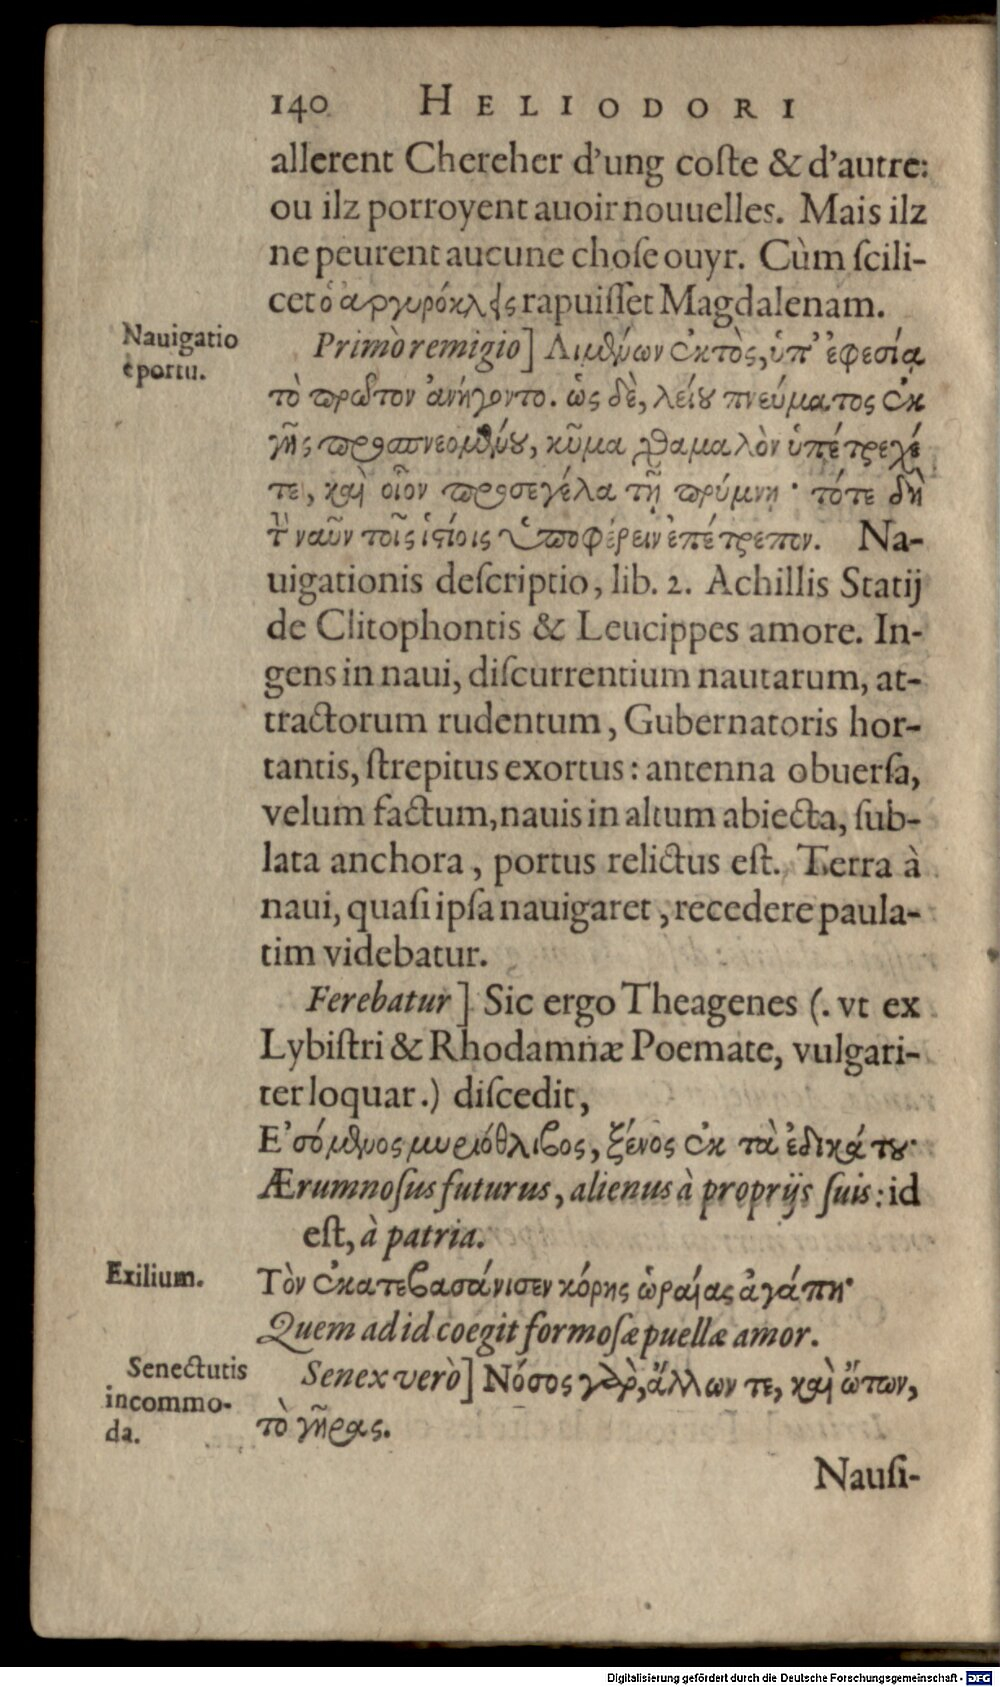 140 HELIODORI
allerent Chereher d'ung coſte & d'autre:
ou ilz porroyent auoir nouuelles. Mais ilz
ne peurent aucune choſe ouyr. Cùm ſcili-
cet ὁ ἀργυρόκλης rapuiſſet Magdalenam.
Nauigatio
è portu.
Primò remigio] Λιμένων ἐκτὸς, ὑπ' ἐφεσία
τὸ πρῶτον ἀνήγοντο. ὡς δὲ, λείου πνεύματος ἐκ
γῆς προσπνεομένου, κῦμα χθαμαλὸν ὑπέτρεχέ
τε, καὶ οἷον προσεγέλα τῇ πρύμνῃ· τότε δὴ
τὴν ναῦν τοῖς ἱστίοις ὑποφέρειν ἐπέτρεπον. Na-
uigationis deſcriptio, lib. 2. Achillis Statij
de Clitophontis & Leucippes amore. In-
gens in naui, diſcurrentium nautarum, at-
tractorum rudentum, Gubernatoris hor-
tantis, ſtrepitus exortus: antenna obuerſa,
velum factum, nauis in altum abiecta, ſub-
lata anchora, portus relictus eſt. Terra à
naui, quaſi ipſa nauigaret, recedere paula-
tim videbatur.
Ferebatur] Sic ergo Theagenes (. vt ex
Lybiſtri & Rhodamnæ Poemate, vulgari-
ter loquar.) diſcedit,
Ε'σόμενος μυριόθλιβος, ξένος ἐκ τὰ ἐδικά του·
Ærumnoſus futurus, alienus à proprijs ſuis: id
eſt, à patria.
Exilium.
Τὸν ἐκατεβασάνισεν κόρης ὡραίας ἀγάπη·
Quem ad id coegit formoſæ puellæ amor.
Senectutis
incommo-
da.
Senex verò] Νόσος γὰρ, ἄλλων τε, καὶ ὤτων,
τὸ γῆρας.
Nauſi-
Digitalisierung gefördert durch die Deutsche Forschungsgemeinschaft - DFG